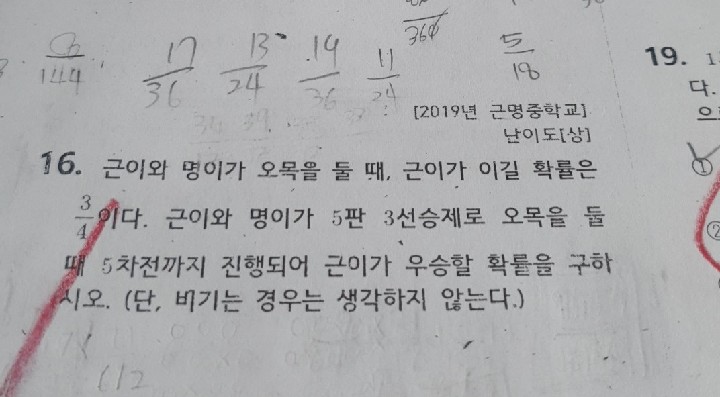 17/36 13/24 19/36 11/24 5/18
[2019년 근명중학교]
난이도[상]
16. 근이와 명이가 오목을 둘 때, 근이가 이길 확률은
3/4이다. 근이와 명이가 5판 3선승제로 오목을 둘
때 5차전까지 진행되어 근이가 우승할 확률을 구하
시오. (단, 비기는 경우는 생각하지 않는다.)
19.
다.
①
②